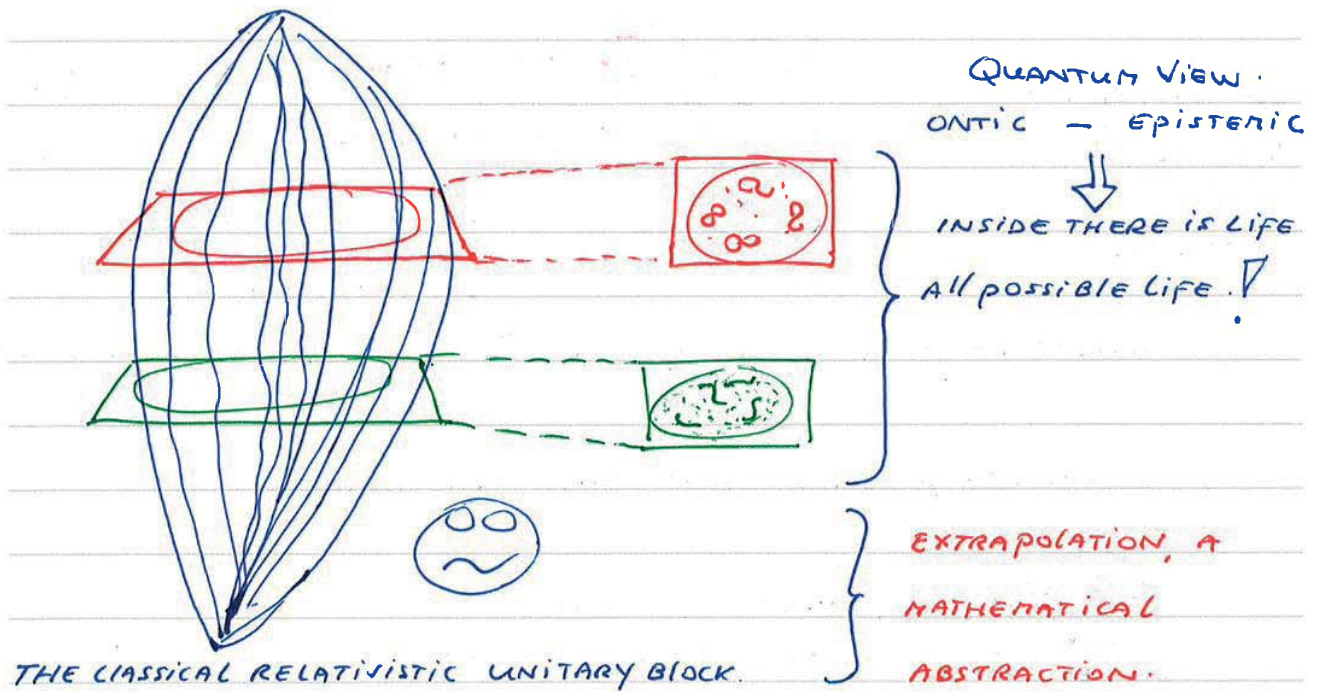 QUANTUM VIEW.
ONTIC – EPISTEMIC
INSIDE THERE IS LIFE
All POSSIBLE LIFE.!
EXTRAPOLATION, A
MATHEMATICAL
ABSTRACTION.
THE CLASSICAL RELATIVISTIC UNITARY BLOCK.